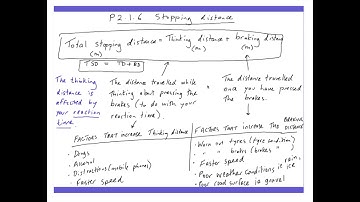 P2.1.6 Stopping distance
Total stopping distance = Thinking distance + braking distance
(m) (m) (m)
TSD = TD + BD
The thinking
distance is
affected by
your reaction
time
The distance travelled while
thinking about pressing the
brakes (to do with your
reaction time).
The distance travelled
once you have pressed
the brakes.
FACTORS THAT increase Thinking distance
• Drugs
• Alcohol
• Distractions (mobile phones)
• Faster speed
FACTORS THAT increase THE BRAKING DISTANCE
• Worn out tyres (tyre condition)
• " " brakes (brakes " )
• Faster speed
• Poor weather conditions ie rain, ice
• Poor road surface ie gravel